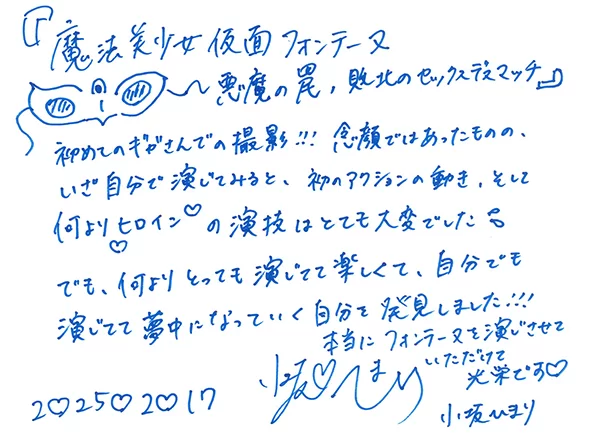 『魔法美少女仮面フォンテーヌ
～悪魔の罠，敗北のセックスデスマッチ』
初めてのギガさんでの撮影!!! 念願ではあったものの、
いざ自分で演じてみると、初のアクションの動き、そして
何よりヒロイン♡の演技はとても大変でした
でも、何よりとっても演じてて楽しくて、自分でも
演じてて夢中になっていく自分を発見しました!!!
本当にフォンテーヌを演じさせて
いただけて
光栄です♡
小坂♡ひまり
2♡25♡2♡17
小坂ひまり